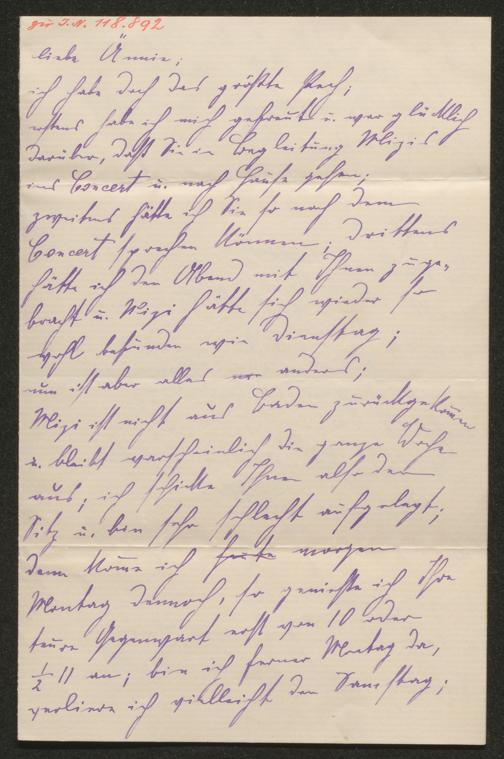 zur I.N. 118.892
liebe Ännie;
ich habe doch das größte Pech;
erstens habe ich mich gefreut u. war glücklich
darüber, daß Sie in Begleitung Mizis
ins Concert u. nach Hause gehen;
zweitens hätte ich Sie so nach dem
Concert sprechen können; drittens
hätte ich den Abend mit Ihnen zuge-
bracht u. Mizi hätte sich wieder so
wohl befunden wie Dienstag;
nun ist aber alles anders;
Mizi ist nicht aus Baden zurückgekommen
u. bleibt warscheinlich die ganze Woche
aus; ich schicke Ihnen also den
Sitz u. bin sehr schlecht aufgelegt;
denn kome ich heute morgen
Montag dennoch, so genieße ich Ihre
teure Gegenwart erst von 10 oder
½ 11 an; bin ich ferner Montag da,
verliere ich vielleicht den Samstag;